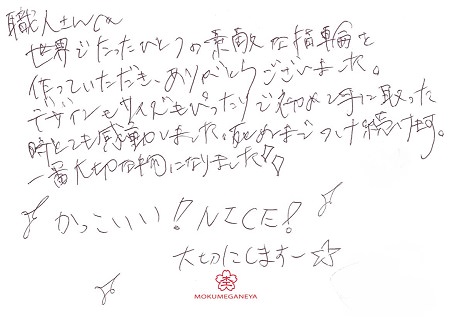 職人さんへ
世界でたったひとつの素敵な指輪を
作っていただき、ありがとうございました。
デザインもサイズもぴったりで初めて手に取った
時とても感動しました。死ぬまでつけ続けます。
一番大切な物になりました!!
かっこいい!NICE!
大切にしますー☆
MOKUMEGANEYA